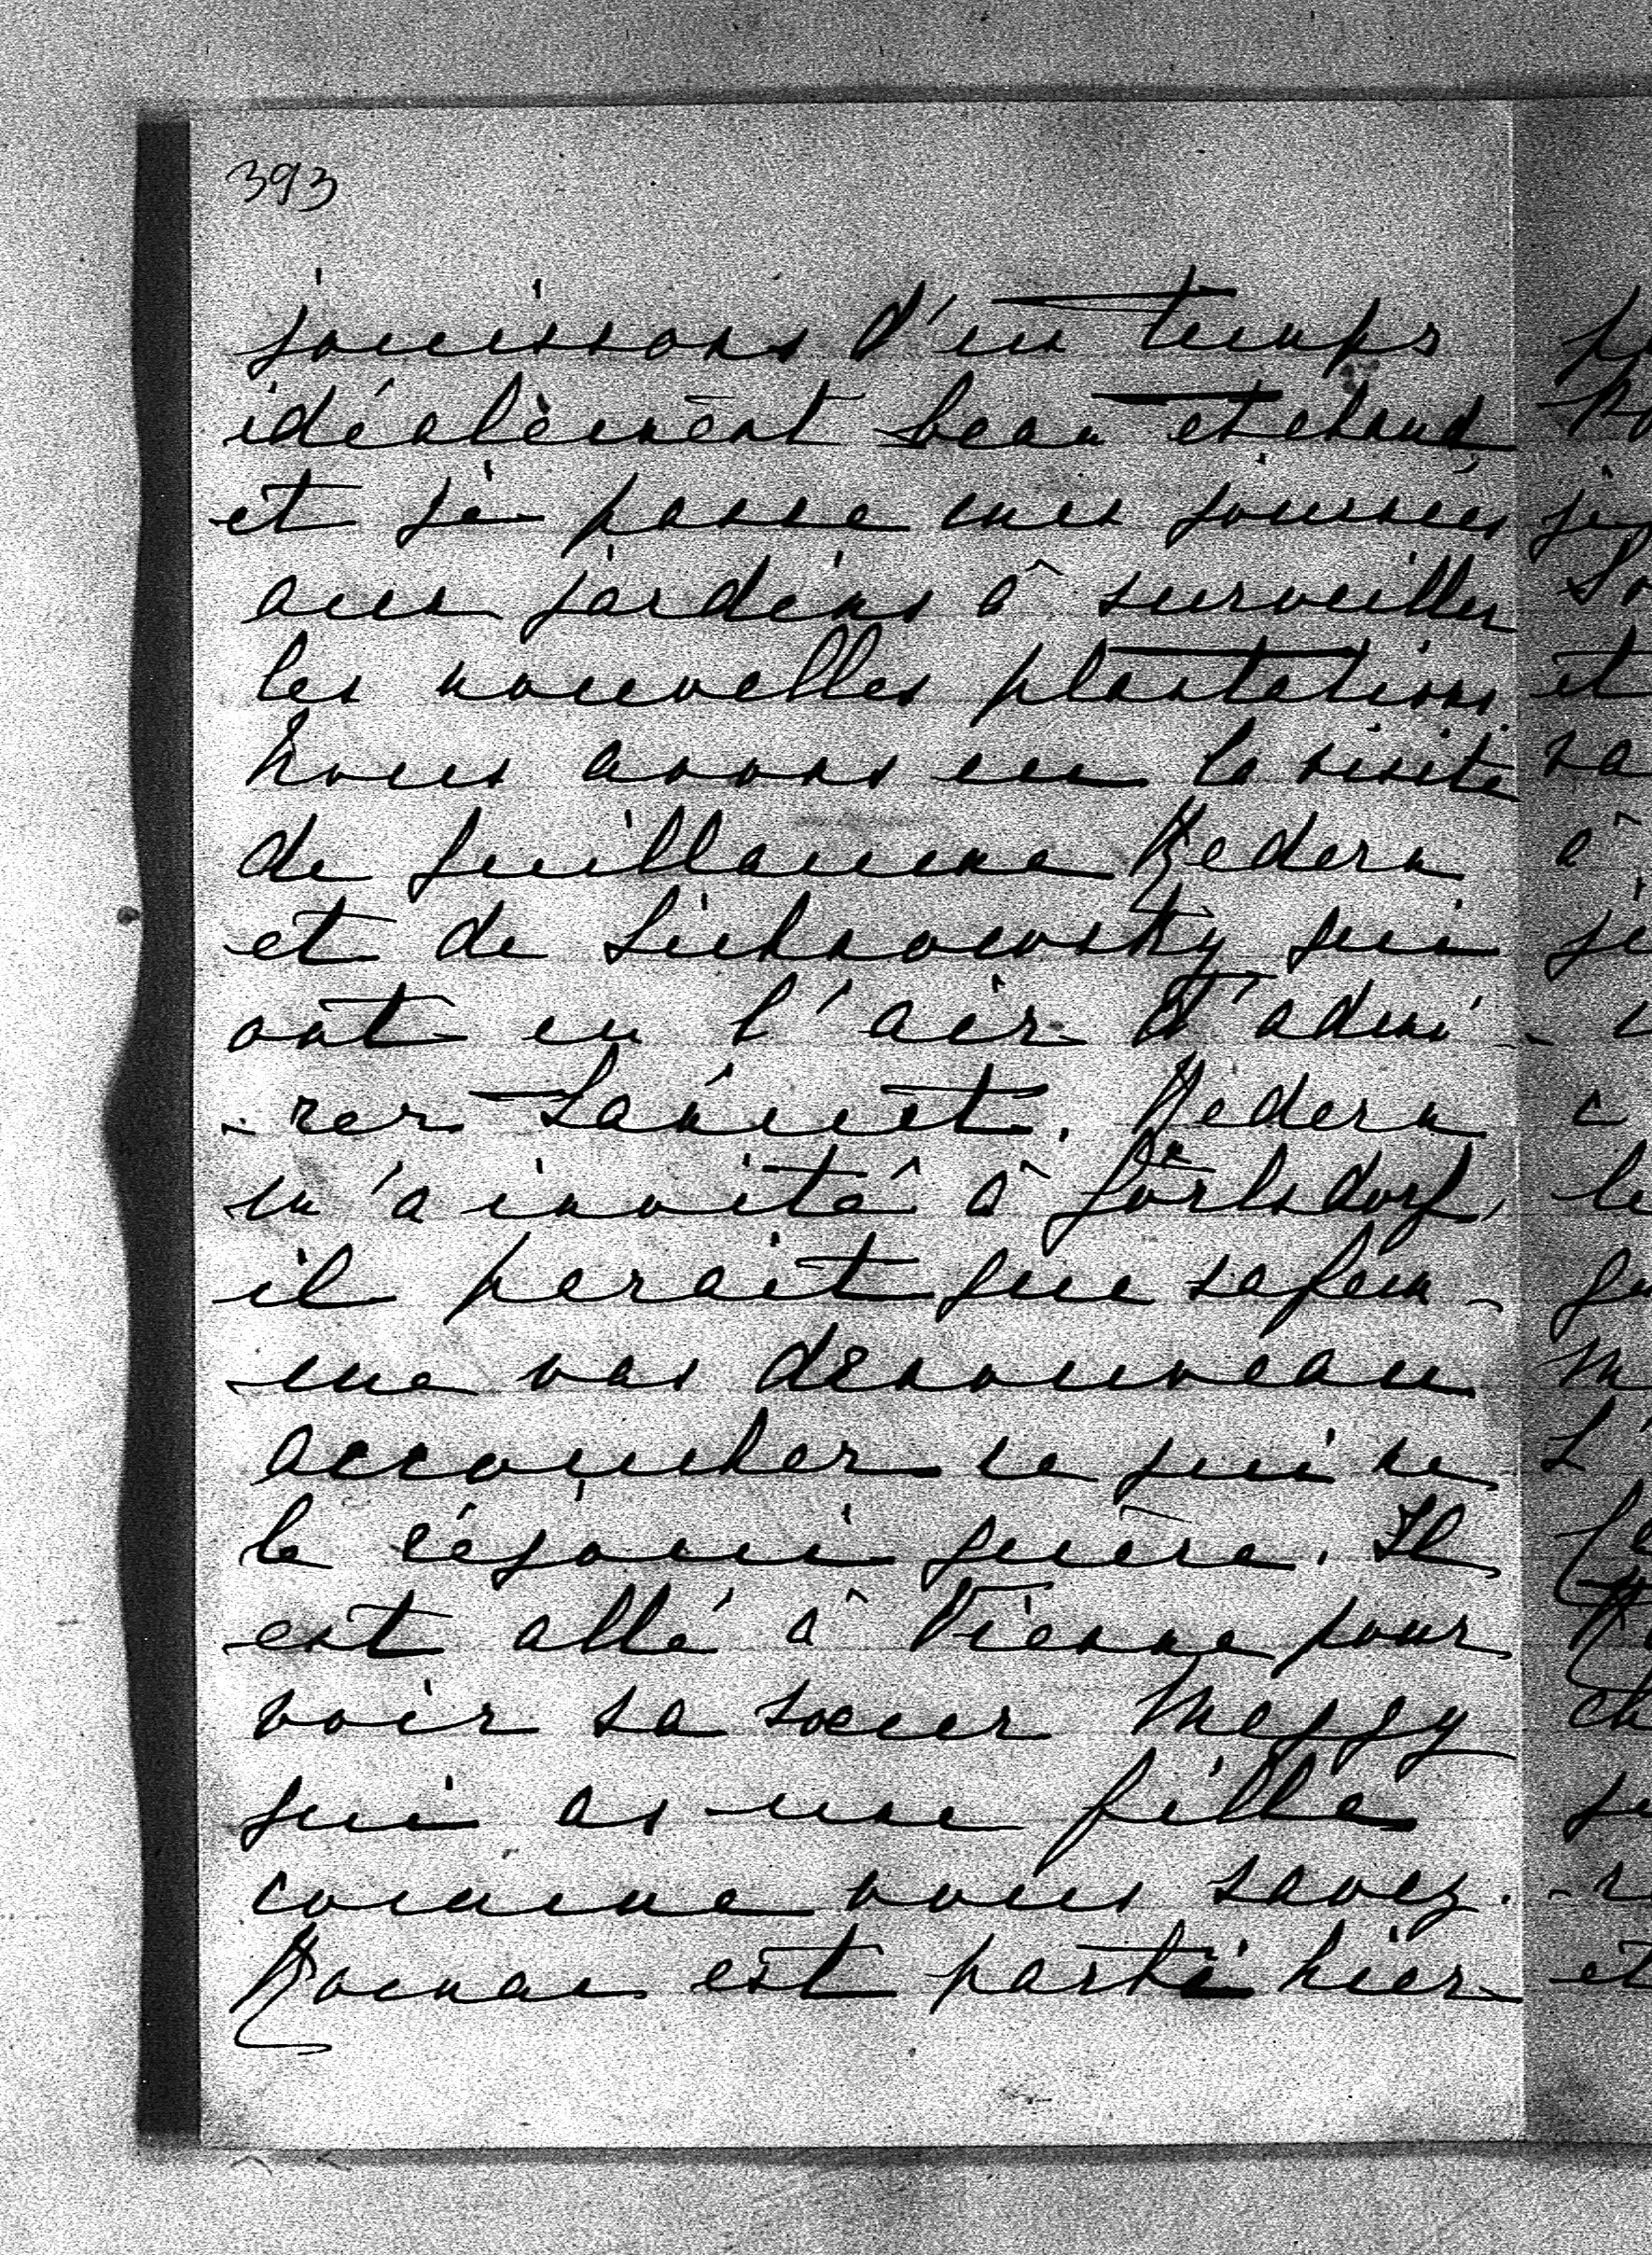 393
jouissons d'un temps
idéalement beau et chaud
et je passe mes journées
aux jardins â surveiller
les nouvelles plantations.
Nous avons eu la visite
de Guillaume Redern
et de Lichnowsky qui
ont eu l'air d'admi-
-rer Lancut. Redern
m'a invité â Görlsdorf,
il parait que sa fem-
me vas de nouveau
accoucher ce qui ne
le réjoui guère. Il
est allé â Vienne pour
voir sa soeur Meggy
qui as une fille
comme vous savez.
Roman est parti hier